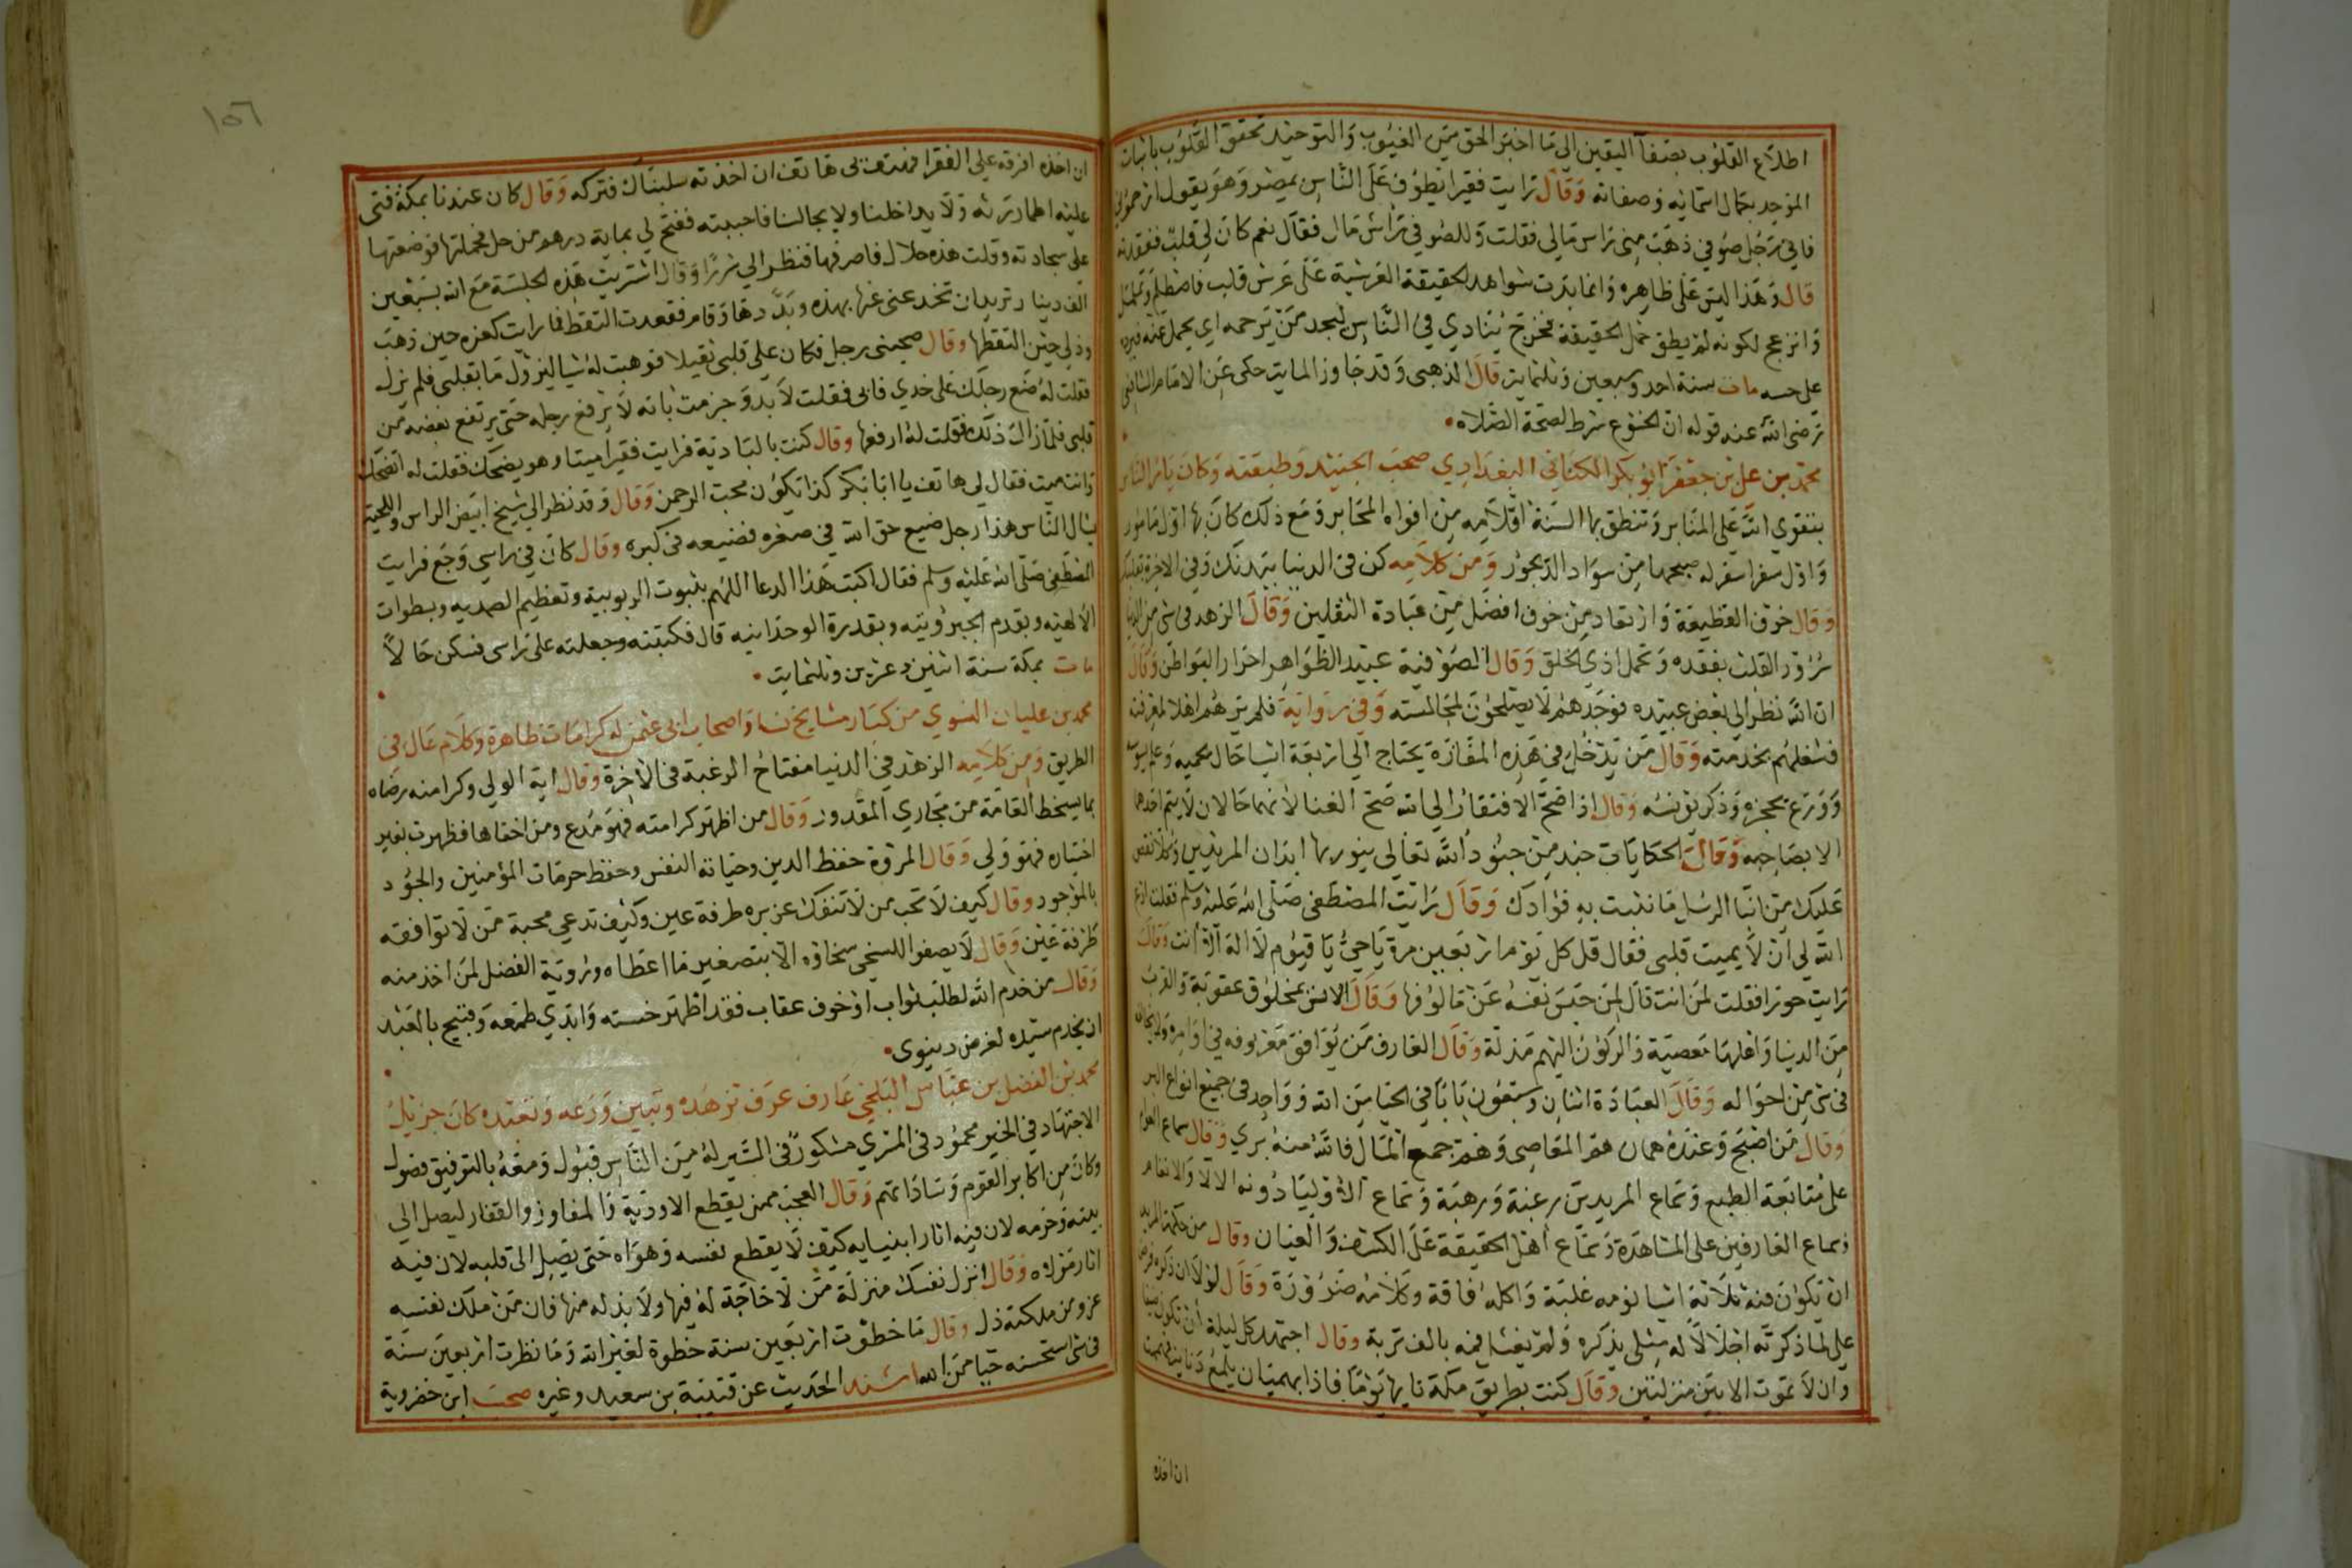 اطلاع القلوب بصفآ اليقين الي ما اخبر الحق من الغيوب والتوحيد تحقق القلوب باثبات
الموحد بكمال اسمائه وصفاته وقال رايت فقيرا يطوف على الناس بمصر وهو يقول ارحموني
فاني رجل صوفي ذهب مني راس مالي فقلت وللصوفي راس مال فقال نعم كان لي قلب ففقدته
قال وهذا ليس على ظاهره وانما بدت شواهد لحقيقة العرشية على عرش قلب فاصطلم
وانزعج لكونه لم يطق حمل الحقيقة فخرج ينادي في الناس ليجد من يرحمه اي يحمل عنه
على حسه مات سنة احد وسبعين وثلثماية قال الذهبى وقد جاوز الماية حكى عن الامام الشافعي
رضى الله عنه قوله ان الخشوع شرط لصحة الصلاه
محمد بن علي بن جعفر ابو بكر الكتاني البغدادي صحب الجنيد وطبقته وكان يامر الناس
بتقوى الله على المنابر وتنطق بها السنة اقلامه من افواه المحابر ومع ذلك كان بها اول مامور
واول سفرا سفر له صبحها من سواد الديجور ومن كلامه كن في الدنيا ببدنك وفي الاخرة بقلبك
وقال خوف القطيعة وارتعاد من خوف افضل من عبادة الثقلين وقال الزهد فى شي من الدنيا
سرور القلب بفقده وتحمل اذي الخلق وقال الصوفية عبيد الظواهر احرار البواطن وقال
ان الله نظر الي بعض عبيده فوجدهم لا يصلحون لمجالسته وفي رواية فلم يرهم اهلا لمعرفته
فشغلهم بخدمته وقال من يدخل في هذه المفازة يحتاج الي اربعة اشيا حال يحميه وعلم يسوسه
وورع يحجزه وذكر يونسه وقال اذا صح الافتقار الي الله صح الغنا لانهما حالان لا يتم احدهما
الا بصاحبه وقال الحكايات جند من جنود الله تعالى ينور بها ابدان المريدين وكلا نقص
عليك من انبا الرسل ما نثبت به فؤادك وقال رايت المصطفى صلى الله عليه وسلم فقلت ادع
الله لي ان لا يميت قلبى فقال قل كل يوم اربعين مرة يا حي يا قيوم لا اله الا انت وقال
رايت حورا فقلت لمن انت قال لمن حبس نفسه عن مالوفها وقال الانس بمخلوق عقوبة والقرب
من الدنيا واهلها معصية والركون اليهم مذلة وقال العارف من يوافق معروفه في اوامره ولا يخالفه
فى شي من احواله وقال العبادة اثنان وسبعون بابا في الحيا من الله وواحد فى جميع انواع البر
وقال من اصبح وعنده همان هم المعاصى وهم جمع المال فالله منه بري وقال سماع العوام
على متابعة الطبع وسماع المريدين رغبة ورهبة وسماع الاوليا رؤية الآلا والانعام
وسماع العارفين على المشاهدة وسماع اهل الحقيقة على الكشف والعيان وقال من حكمة المريد
ان يكون فيه ثلاثة اشيا نومه غلبة واكله فاقة وكلامه ضرورة وقال لولا ان ذكره فرض
على لما ذكرته اجلالا له مثلى يذكره ولم يغسل فمه بالف توبة وقال اجتهد كل ليلة ان تكون
وان لا تموت الا بين منزلتين وقال كنت بطريق مكة نايما يوما فاذا بهميان يلمع دنانير
ان اخذه
١٥٦
ان اخذه افرقه علي الفقرا فهتف بى هاتف ان اخذته سلبناك فتركه وقال كان عندنا بمكة فتى
عليه اطمار رثه ولا يداخلنا ولا يجالسنا فاحببته ففتح لي بماية درهم من حل فحملتها فوضعتها
على سجادته وقلت هذه حلال فاصرفها فنظر الي شزرا وقال اشتريت هذه الجلسة مع الله بسبعين
الف دينار تريد ان تخدعنى عنها بهذه وبددها وقام فقعدت التقط فما رايت كعزه حين ذهب
وذلي حين التقطها وقال صحبني رجل فكان على قلبى ثقيلا فوهبت له شيا ليزول ما بقلبى فلم يزل
فقلت له ضع رجلك على خدي فابى فقلت لا بد وجزمت بانه لا يرفع رجله حتى يرتفع بغضه من
قلبى فلما زال ذلك فقلت له ارفعها وقال كنت بالبادية فرايت فقيرا ميتا وهو يضحك فقلت له اتضحك
وانت ميت فقال لي هاتف يا ابا بكر كذا يكون محب الرحمن وقال وقد نظر الي شيخ ابيض الراس واللحية
يسال الناس هذا رجل ضيع حق الله في صغره فضيعه فى كبره وقال كان في راسي وجع فرايت
المصطفى صلى الله عليه وسلم فقال اكتب هذا الدعا اللهم بثبوت الربوبية وتعظيم الصمديه وبسطوات
الالهيه وبقدم الجبروتيه وبقدرة الوحدانيه قال فكتبته وجعلته على راسي فسكن حالا
مات بمكة سنة اثنين وعشرين وثلثماية
محمد بن عليان النسوي من كبار مشايخ نسا واصحاب ابى عثمن له كرامات ظاهرة وكلام عال فى
الطريق ومن كلامه الزهد في الدنيا مفتاح الرغبة فى الاخرة وقال اية الولي وكرامته رضاه
بما يسخط العامة من مجاري المقدور وقال من اظهر كرامته فهو مدع ومن اخفاها فظهرت بغير
اختياره فهو ولي وقال المروة حفظ الدين وصيانة النفس وحفظ حرمات المؤمنين والجود
بالموجود وقال كيف لا تحب من لا تنفك عن بره طرفة عين وكيف تدعي محبة من لا توافقه
طرفة عين وقال لا يصفوا للسخي سخاؤه الا بتصغير ما اعطاه ورؤية الفضل لمن اخذ منه
وقال من خدم الله لطلب ثواب او خوف عقاب فقد اظهر خسته وابدي طمعه وقبيح بالعبد
ان يخدم سيده لغرض دينوى
محمد بن الفضل بن عباس البلخي عارف عرف تزهده وتبين ورعه وتعبده كان جزيل
الاجتهاد في الخير محمود فى المسري مشكور فى السير له من الناس قبول ومعه بالتوفيق فضول
وكان من اكابر القوم وساداتهم وقال العجب ممن يقطع الاودية والمفاوز والقفار ليصل الي
بيته وحرمه لان فيه اثار انبيايه كيف لا يقطع نفسه وهواه حتى يصل الى قلبه لان فيه
اثار مولاه وقال انزل نفسك منزلة من لا حاجة له فيها ولا بد له منها فان من ملك نفسه
عز ومن ملكته ذل وقال ما خطوت اربعين سنة خطوة لغير الله وما نظرت اربعين سنة
فى شي استحسنه حيا من الله اسند الحديث عن قتيبة بن سعيد وغيره صحب ابن خضروية